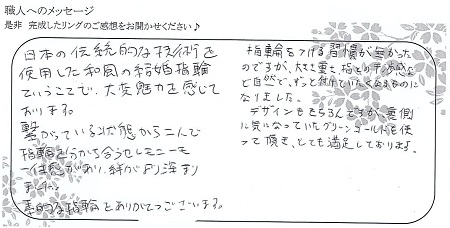 職人へのメッセージ
是非 完成したリングのご感想をお聞かせください♪
日本の伝統的な技術を
使用した和風の結婚指輪
ということで、大変魅力を感じて
おります。
繋がっている状態から二人で
指輪を分かち合うセレモニーも
一体感があり、絆が より深まり
ました。
素的な指輪をありがとうございます。
指輪をつける習慣が無かった
のですが、大きさ、重さ、指との
など自然で、ずっと付けていたくなるものに
なりました。
デザインももちろんですが、裏側
に気になっていたグリーンゴールドを使
って頂き、とても満足しております。